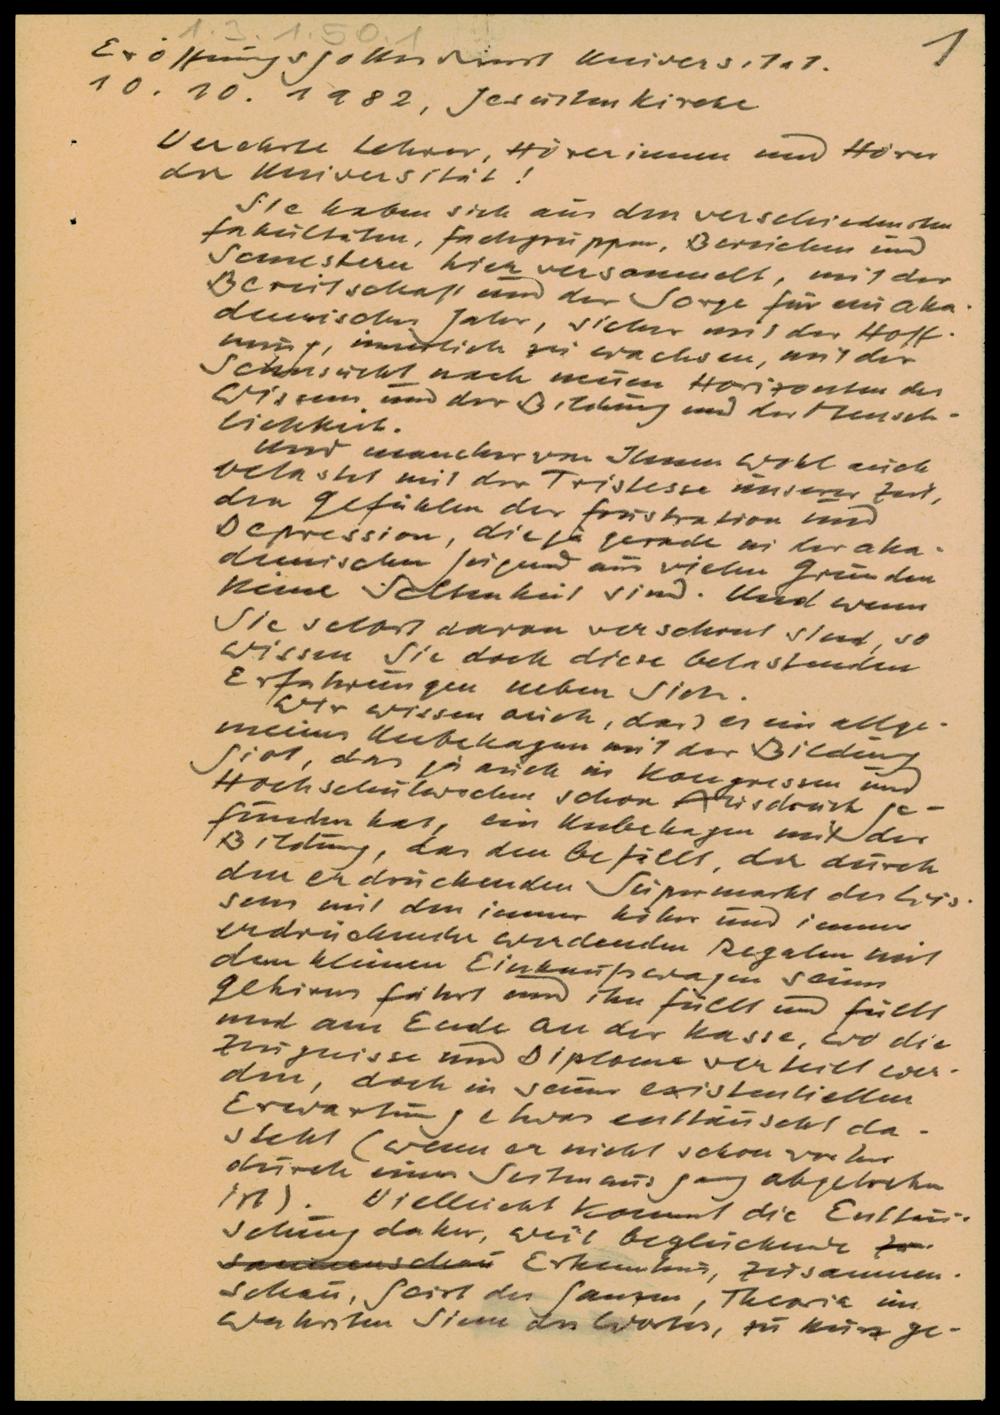 1.3.1.50.1
1
Eröffnungsgottesdienst Universität.
10. 10. 1982, Jesuitenkirche
Verehrte Lehrer, Hörerinnen und Hörer
der Universität!
Sie haben sich aus den verschiedensten
Fakultäten, Fachgruppen, Bereichen und
Semestern hier versammelt, mit der
Bereitschaft und der Sorge für ein aka-
demisches Jahr, sicher mit der Hoff-
nung, innerlich zu wachsen, mit der
Sehnsucht nach neuen Horizonten des
Wissens und der Bildung und der Mensch-
lichkeit.
Und mancher von Ihnen wohl auch
belastet mit der Tristesse unserer Zeit,
den Gefühlen der Frustration und
Depression, die ja gerade in der aka-
demischen Jugend aus vielen Gründen
keine Seltenheit sind. Und wenn
Sie selbst davon verschont sind, so
wissen Sie doch diese belastenden
Erfahrungen neben Sich.
Wir wissen auch, dass es ein allge-
meines Unbehagen mit der Bildung
gibt, das ja auch in Kongressen und
Hochschulwochen schon Ausdruck ge-
funden hat, ein Unbehagen mit der
Bildung, das den befällt, der durch
den erdrückenden Supermarkt des Wis-
sens mit den immer höher und immer
erdrückender werdenden Regalen mit
dem kleinen Einkaufswagen seines
Gehirns fährt und ihn füllt und füllt
und am Ende an der Kasse, wo die
Zeugnisse und Diplome verteilt wer-
den, doch in seiner existentiellen
Erwartung etwas enttäuscht da-
steht (wenn er nicht schon vorher
durch einen Seitenausgang abgetreten
ist). Vielleicht kommt die Enttäu-
schung daher, weil beglückende Zu-
sammenschau Erkenntnis, Zusammen-
schau, Geist des Ganzen, Theoria im
wahrsten Sinne des Wortes, zu kurz ge-